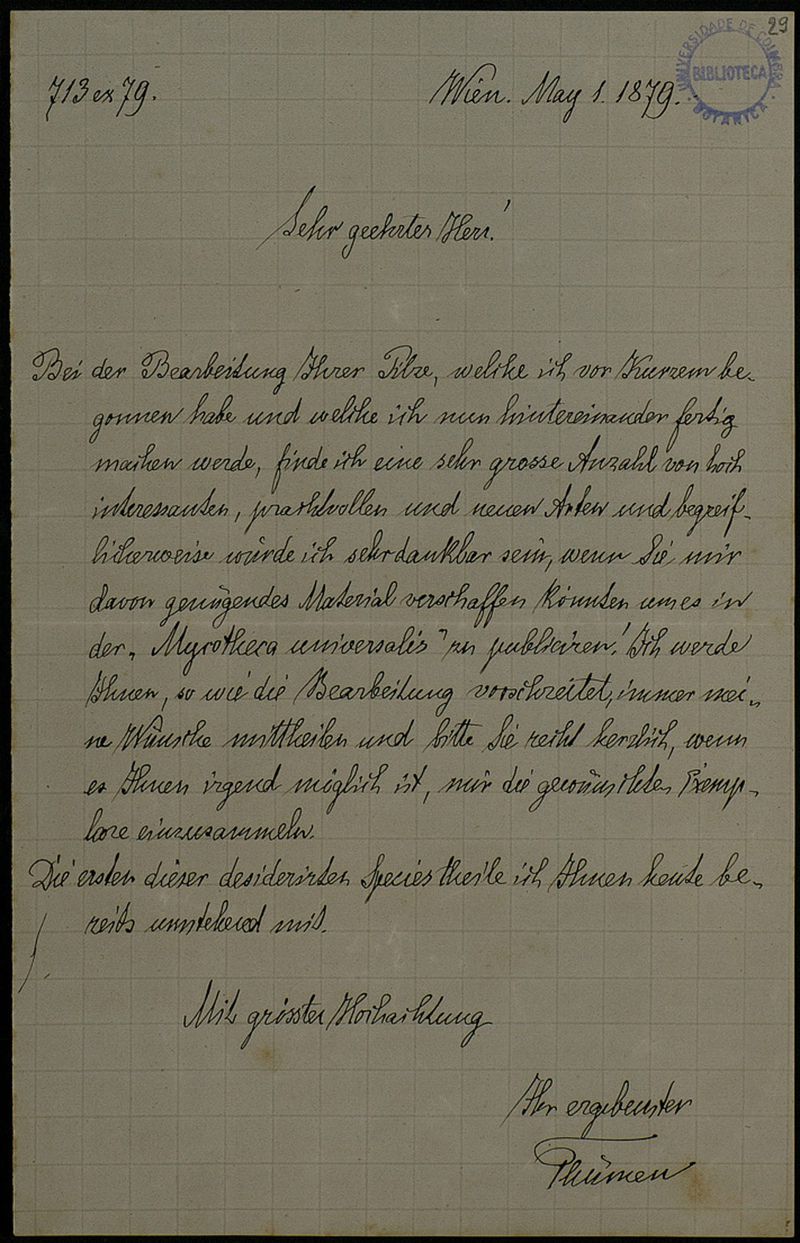 29
UNIVERSIDADE DE COIMBRA
BIBLIOTECA
BOTANICA
713 ex 79.
Wien. May 1. 1879.
Sehr geehrter Herr!
Bei der Bearbeitung Ihrer Pilze, welche ich vor Kurzem be-
gonnen habe und welche ich nun hintereinander fertig
machen werde, finde ich eine sehr grosse Anzahl von hoch
interessanten, prachtvollen und neuen Arten und begreif-
licherweise würde ich sehr dankbar sein, wenn Sie mir
davon genügendes Material verschaffen könnten um es in
der „Mycotheca universalis" zu publiciren! Ich werde
Ihnen, so wie die Bearbeitung vorschreitet, immer mei-
ne Wünsche mittheilen und bitte Sie recht herzlich, wenn
es Ihnen irgend möglich ist, mir die gewünschten Exemp-
lare einzusammeln.
Die ersten dieser desiderirten Species theile ich Ihnen heute be-
reits umstehend mit.
Mit grösster Hochachtung
Ihr ergebenster
Thümen